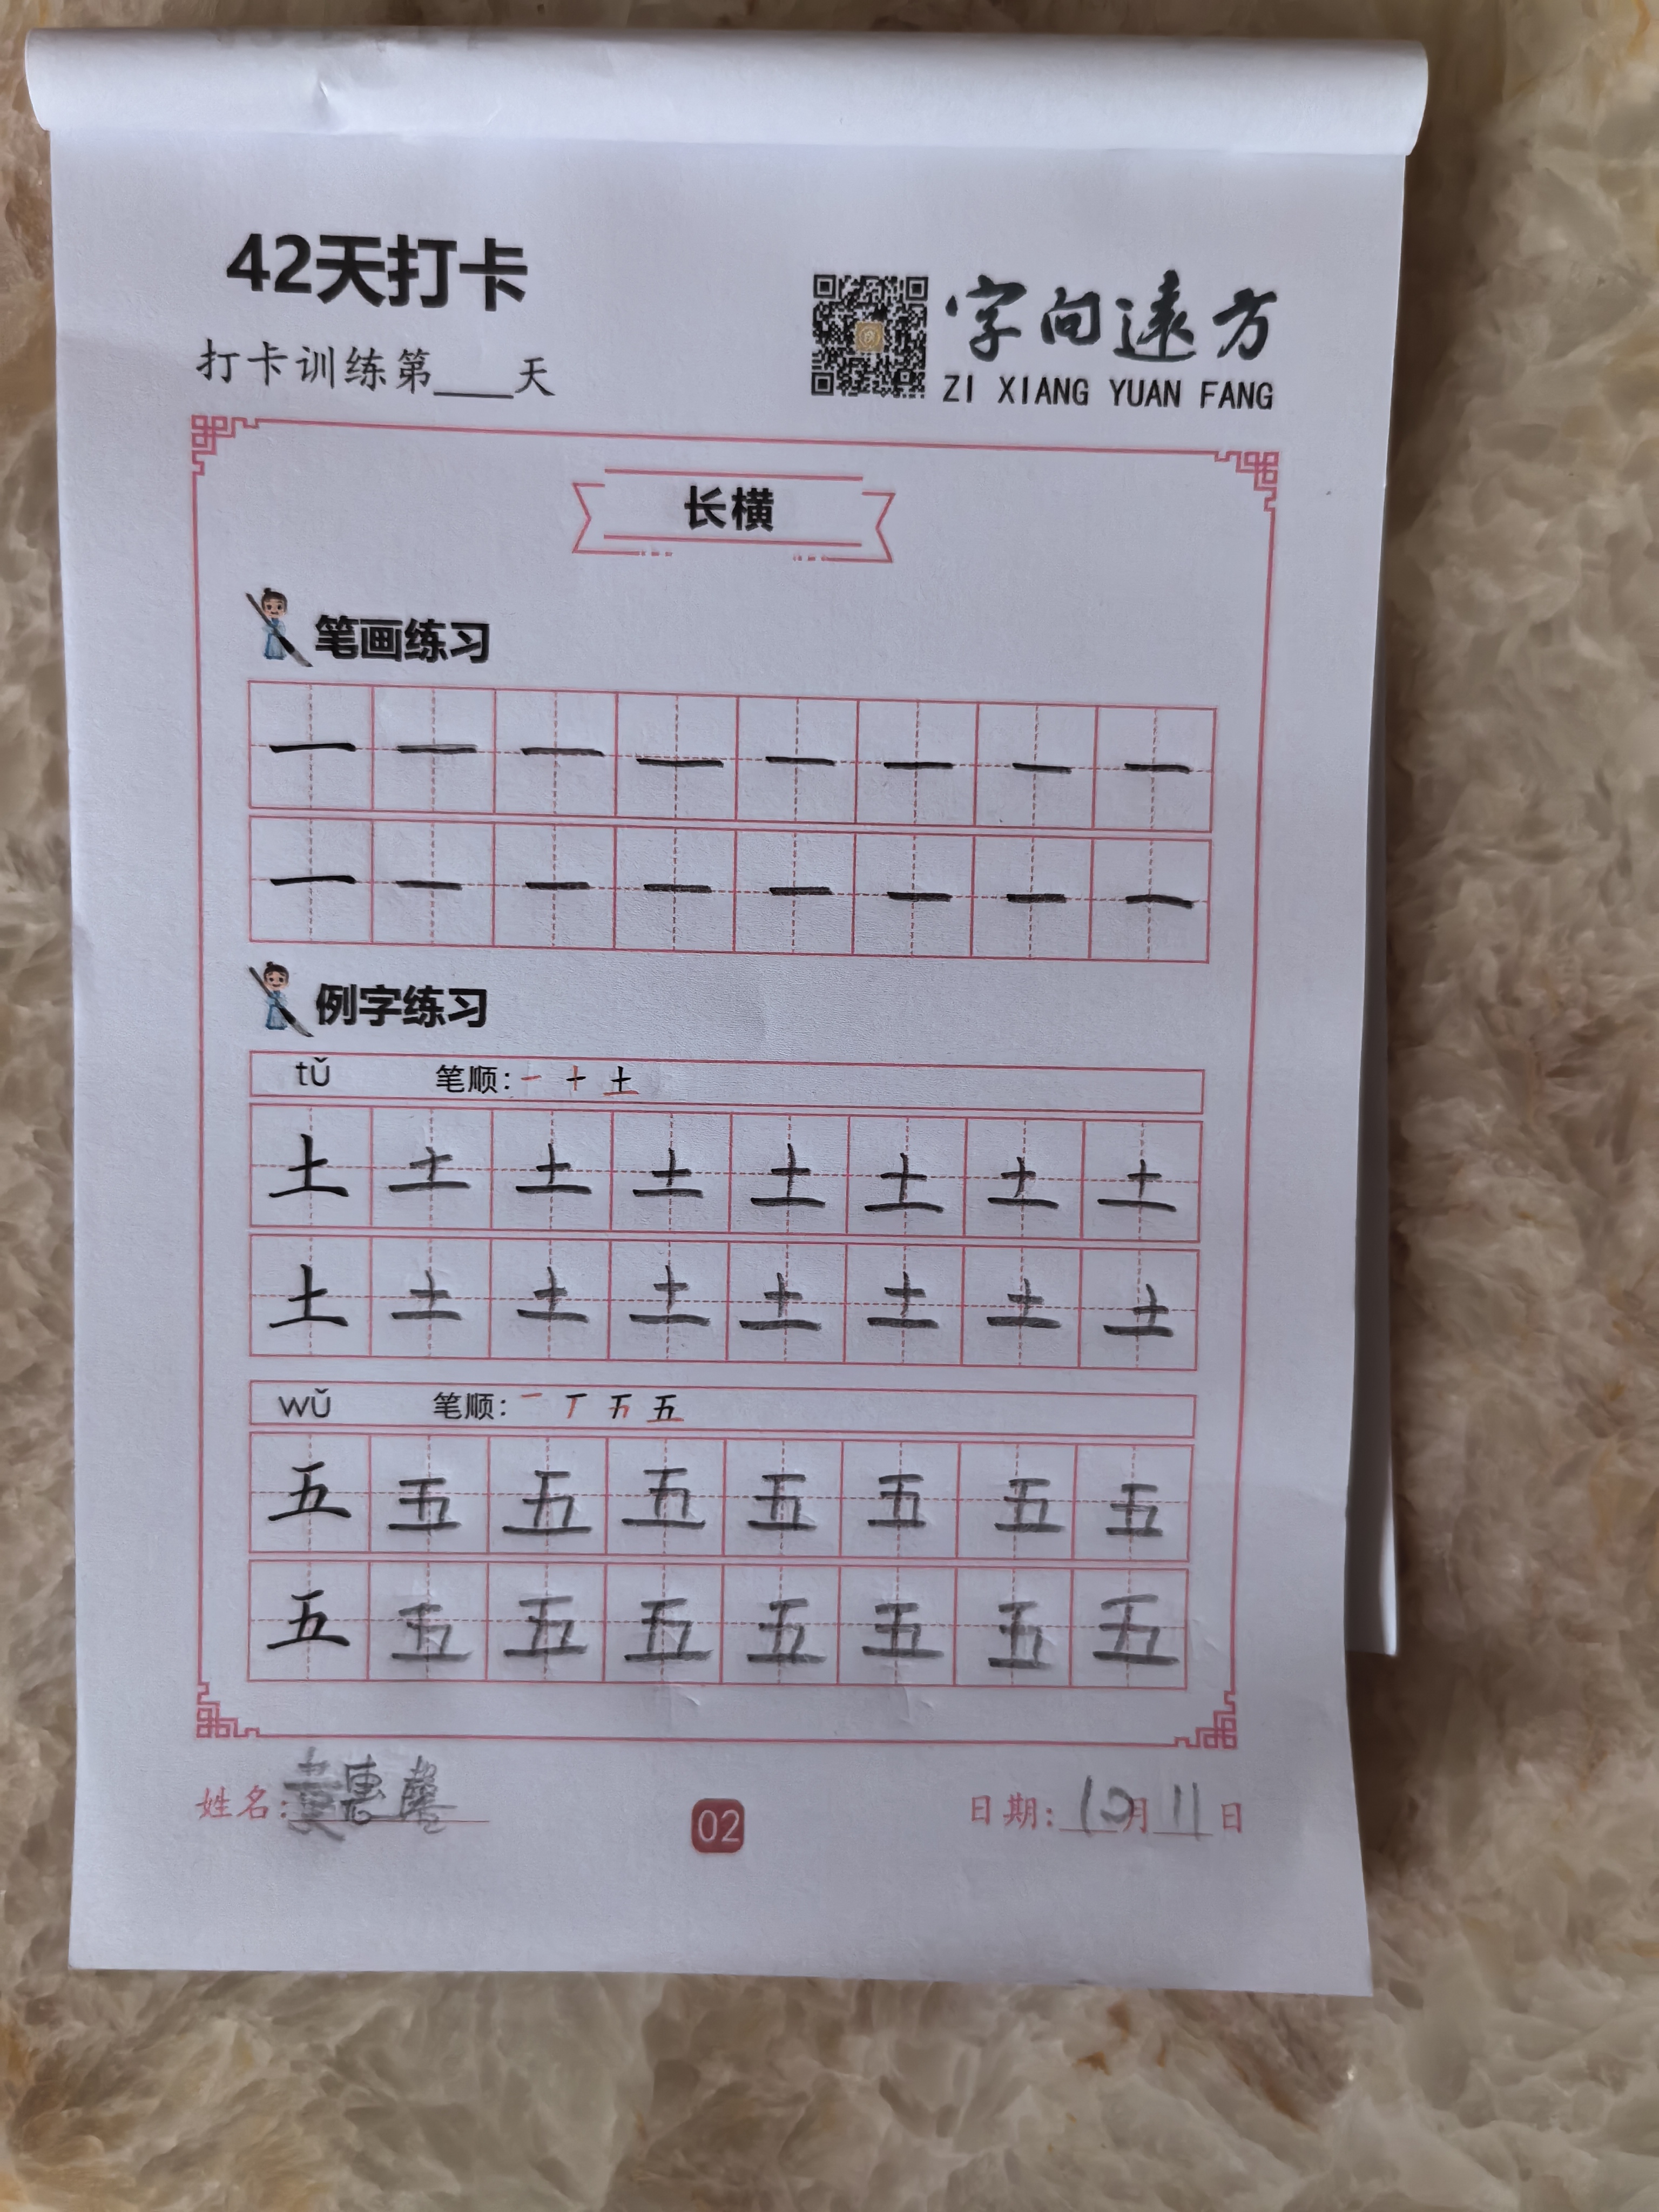 42天打卡
打卡训练第____天
字向遠方
ZI XIANG YUAN FANG
长横
笔画练习
一 一 一 一 一 一 一 一
一 一 一 一 一 一 一 一
例字练习
tǔ 笔顺: 一 十 土
土 土 土 土 土 土 土 土
土 土 土 土 土 土 土 土
wǔ 笔顺: 一 丅 五
五 五 五 五 五 五 五 五
五 五 五 五 五 五 五 五
姓名: 惠馨
02
日期: 10月11日